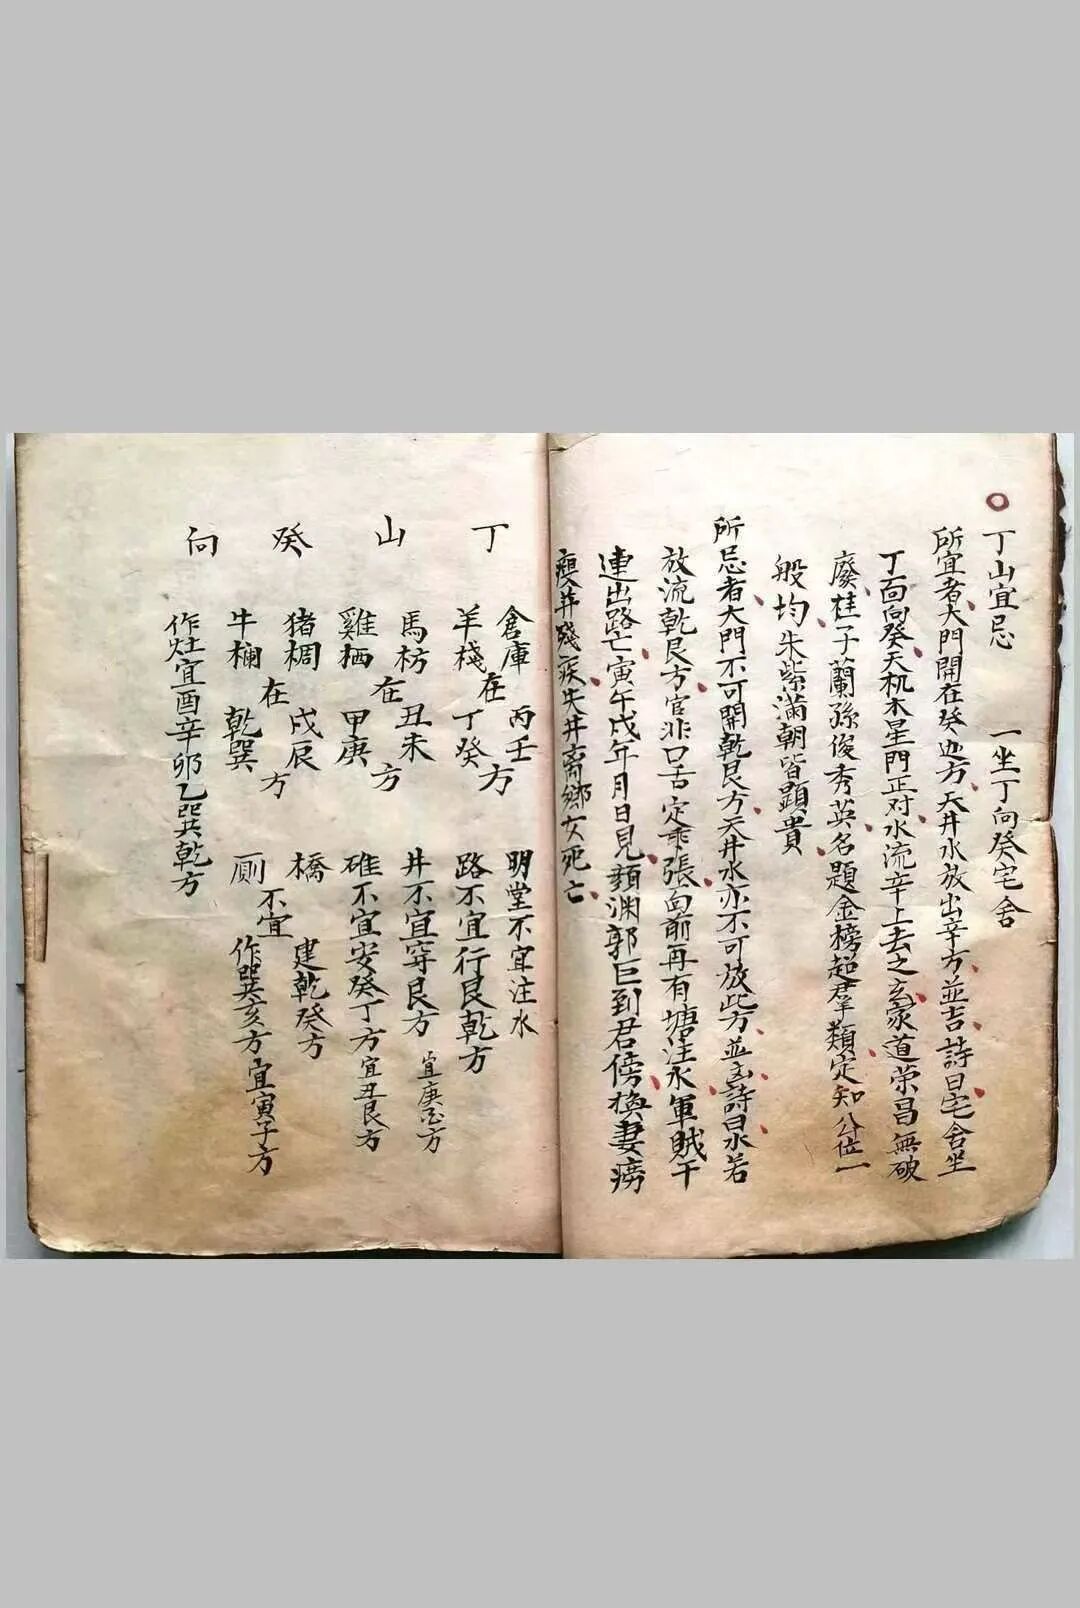 丁山宜忌　一坐丁向癸宅舍
所宜者大門開在癸迯方天井水放出辛方並吉詩曰宅舍坐
丁面向癸天机木星門正对水流辛上去之玄家道荣昌無破
廢桂子蘭孫俊秀英名題金榜超羣類定知公位一
般均朱紫滿朝皆顕貴
所忌者大門不可開乾艮方天井水亦不可放此方並玄詩曰水若
放流乾艮方官非口舌定乖張面前再有塘注水軍賊干
連出路亡寅午戍年月日見顔渊郭巨到君傍換妻痨
瘦并殘疾失井离鄉女死亡
丁山癸向
倉庫 羊棧 在 丙壬 丁癸 方
馬枋 雞栖 在 丑未 甲庚 方
猪椆 牛欄 在 戍辰 乾巽 方
作灶宜酉辛卯乙巽乾方
明堂不宜注水
路不宜行艮乾方
井不宜穿艮方 宜庚方
碓不宜安癸丁方 宜丑艮方
橋 厠 不宜 建乾癸方 作巽亥方宜寅子方